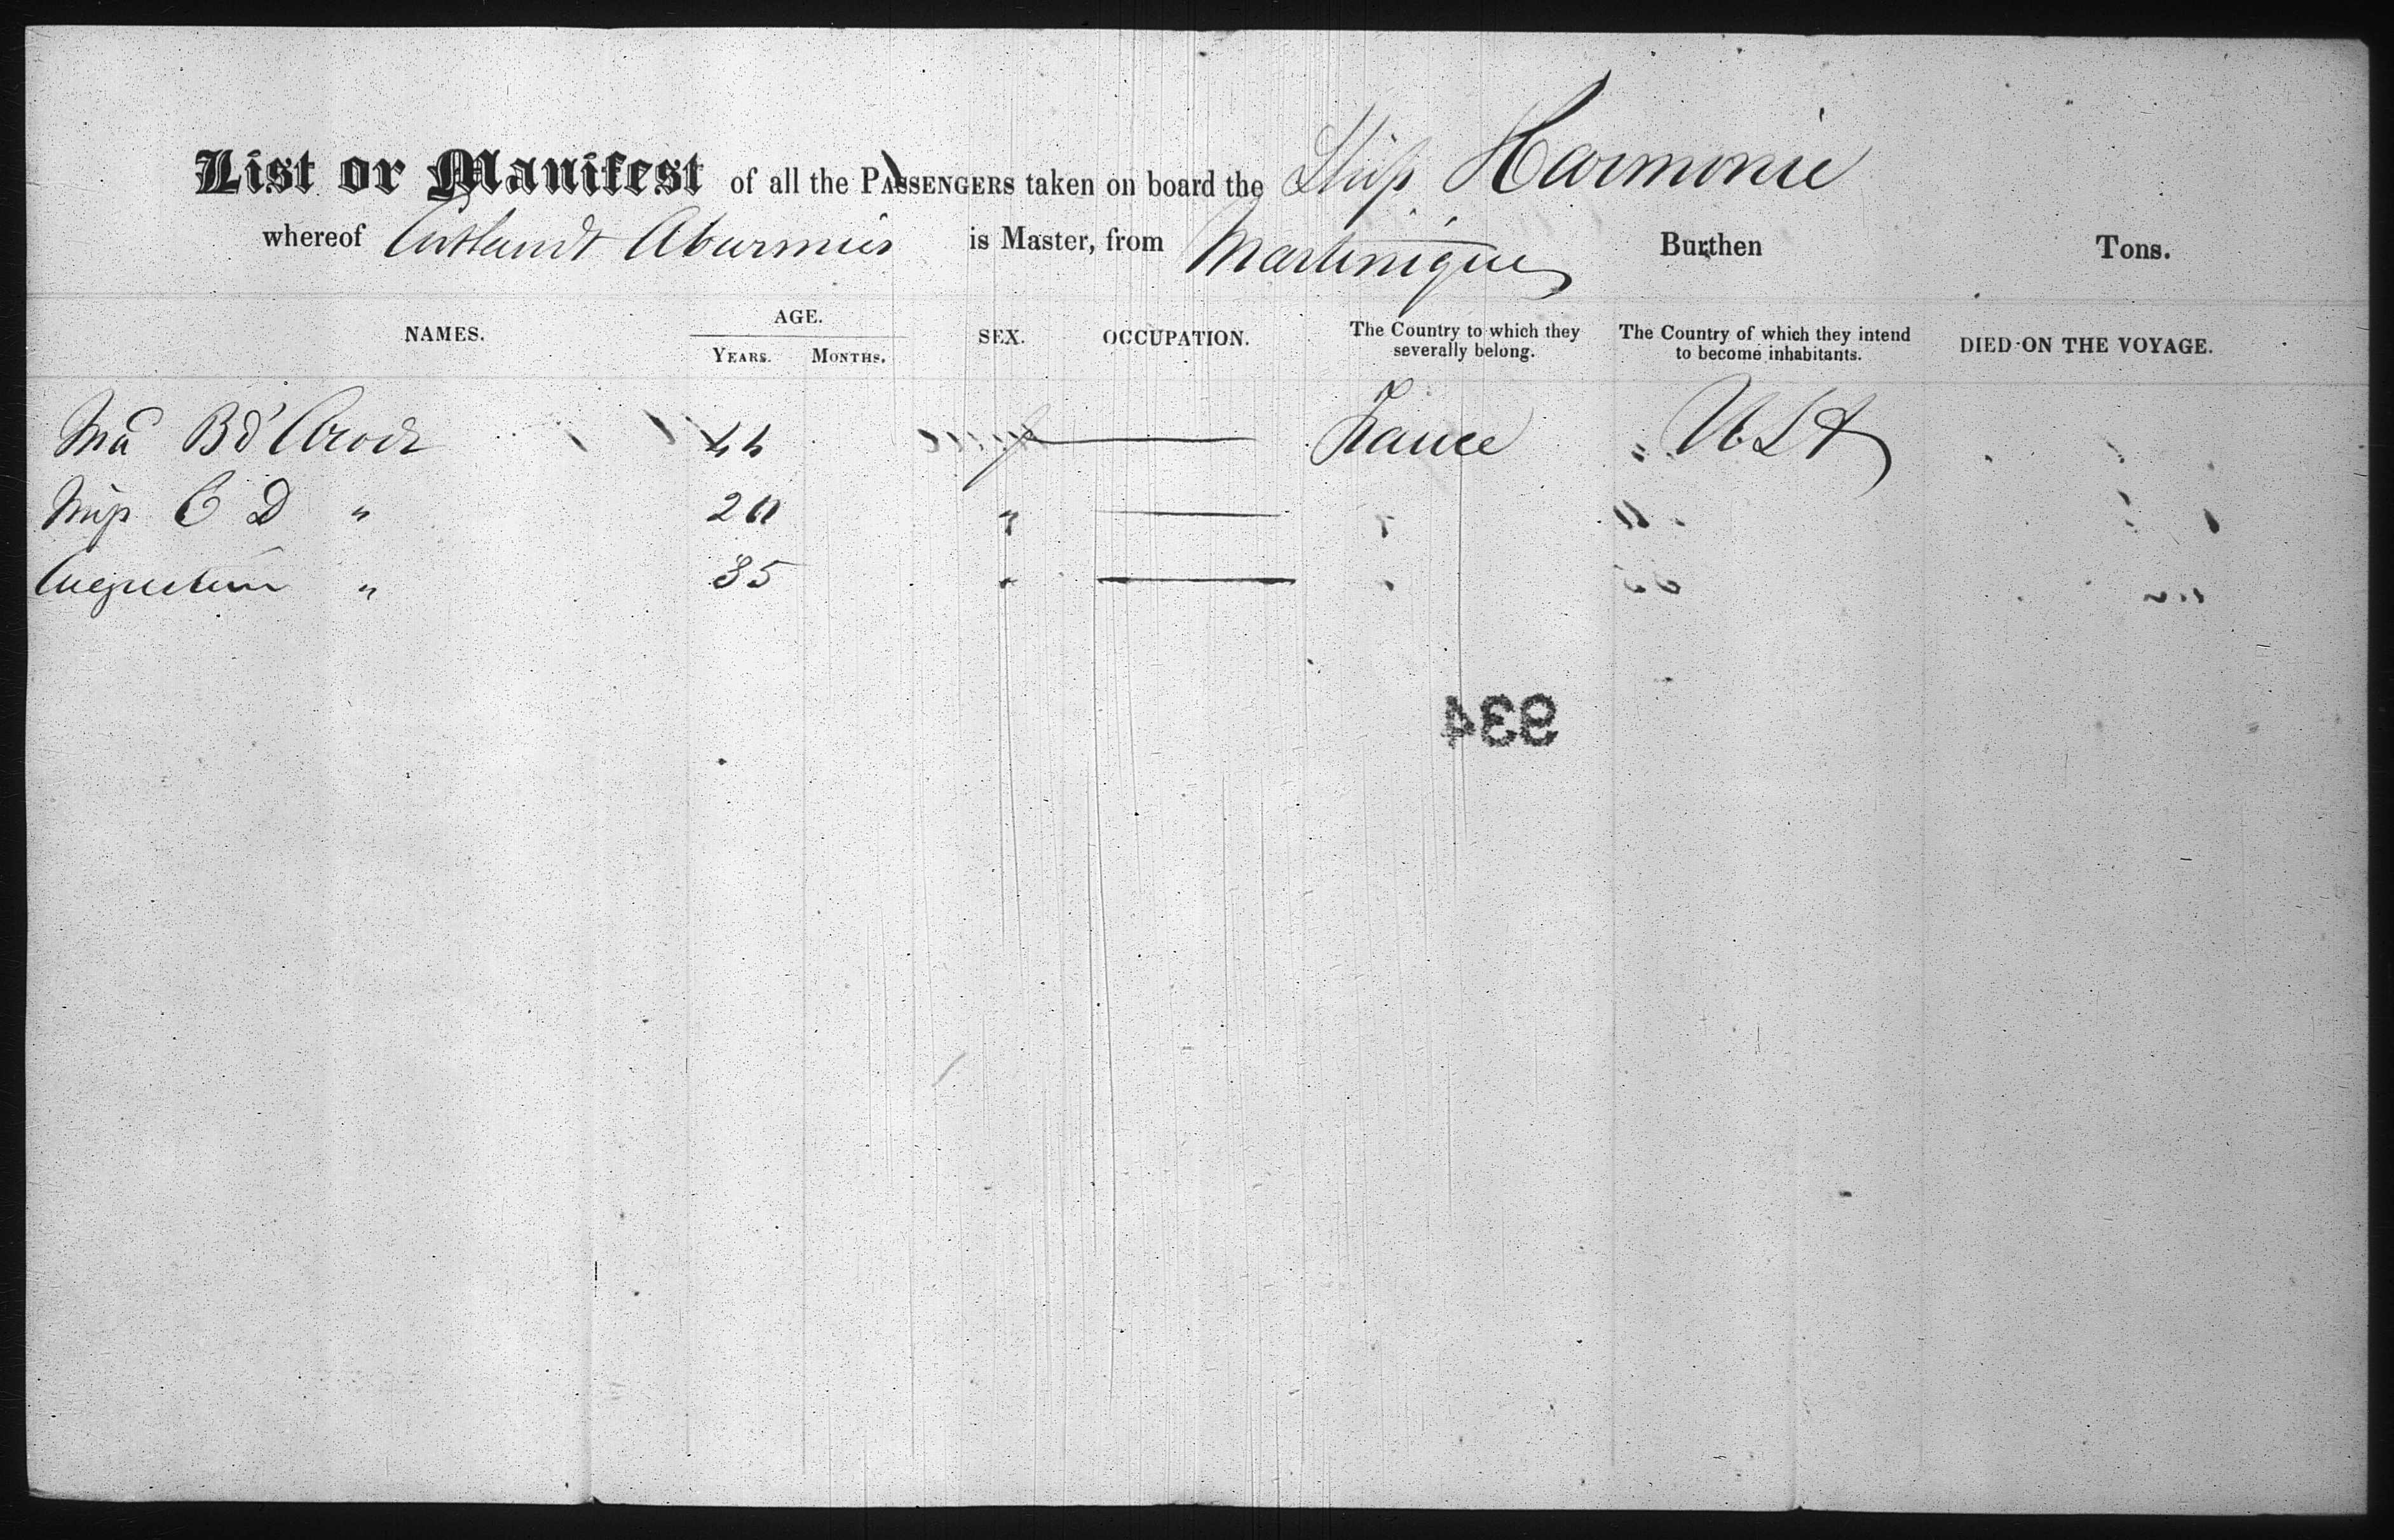 List or Manifest of all the PASSENGERS taken on board the Ship Harmonie
whereof is Master, from Martinique Burthen Tons.
NAMES. AGE. YEARS. MONTHS. SEX. OCCUPATION. The Country to which they severally belong. The Country of which they intend to become inhabitants. DIED ON THE VOYAGE.
44 f France " USA
Miss C D " 20 "
Augustine " 35 "
934